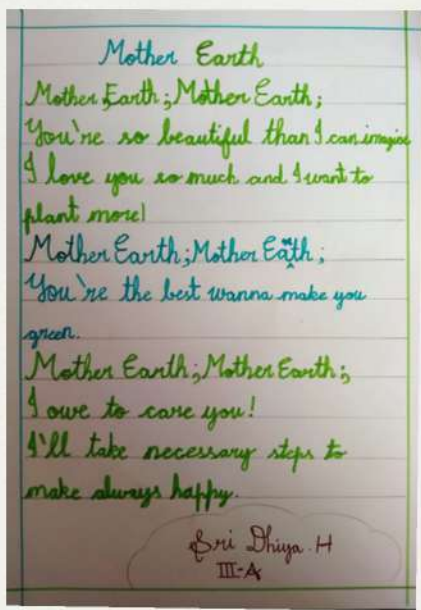 Mother Earth
Mother Earth; Mother Earth;
You're so beautiful than I can imagine
I love you so much and I want to
plant more!
Mother Earth; Mother Earth;
You're the best wanna make you
green.
Mother Earth; Mother Earth;
I owe to care you!
I'll take necessary steps to
make always happy.
Sri Dhiya. H
III-A